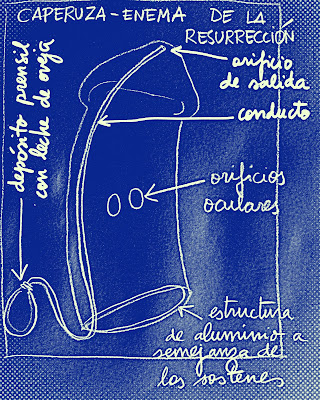 CAPERUZA-ENEMA DE LA
RESURRECCIÓN
orificio
de salida
conducto
depósito prensil
con leche de oveja
orificios
oculares
estructura
de aluminio a
semejanza de
los sostenes